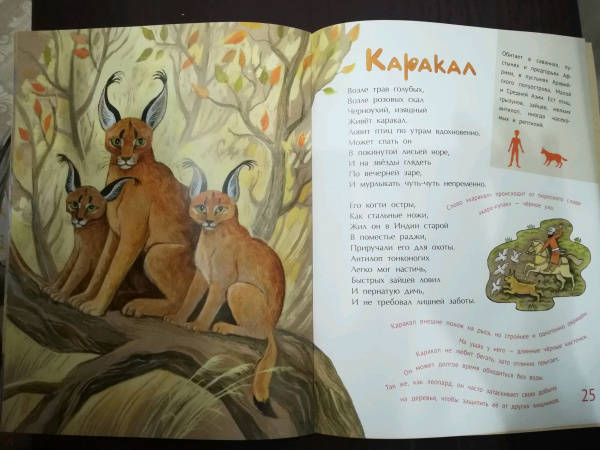 Каракал
Возле трав голубых,
Возле розовых скал
Черноухий, изящный
Живёт каракал.
Ловит птиц по утрам вдохновенно,
Может спать он
В покинутой лисьей норе,
И на звёзды глядеть
По вечерней заре,
И мурлыкать чуть-чуть непременно.
Его когти остры,
Как стальные ножи,
Жил он в Индии старой
В поместье раджи,
Приручали его для охоты.
Антилоп тонконогих
Легко мог настичь,
Быстрых зайцев ловил
И пернатую дичь,
И не требовал лишней заботы.
Обитает в саваннах, пу-
стынях и предгорьях Аф-
рики, в пустынях Аравий-
ского полуострова, Малой
и Средней Азии. Ест птиц,
грызунов, зайцев, мелких
антилоп, иногда насеко-
мых и рептилий.
Слово «каракал» происходит от тюркского слова
«кара-кулак» – чёрное ухо.
Каракал внешне похож на рысь, но стройнее и однотонно окрашен.
На ушах у него – длинные чёрные кисточки.
Каракал не любит бегать, зато отлично прыгает.
Он может долгое время обходиться без воды.
Так же, как леопард, он часто затаскивает свою добычу
на деревья, чтобы защитить её от других хищников.
25